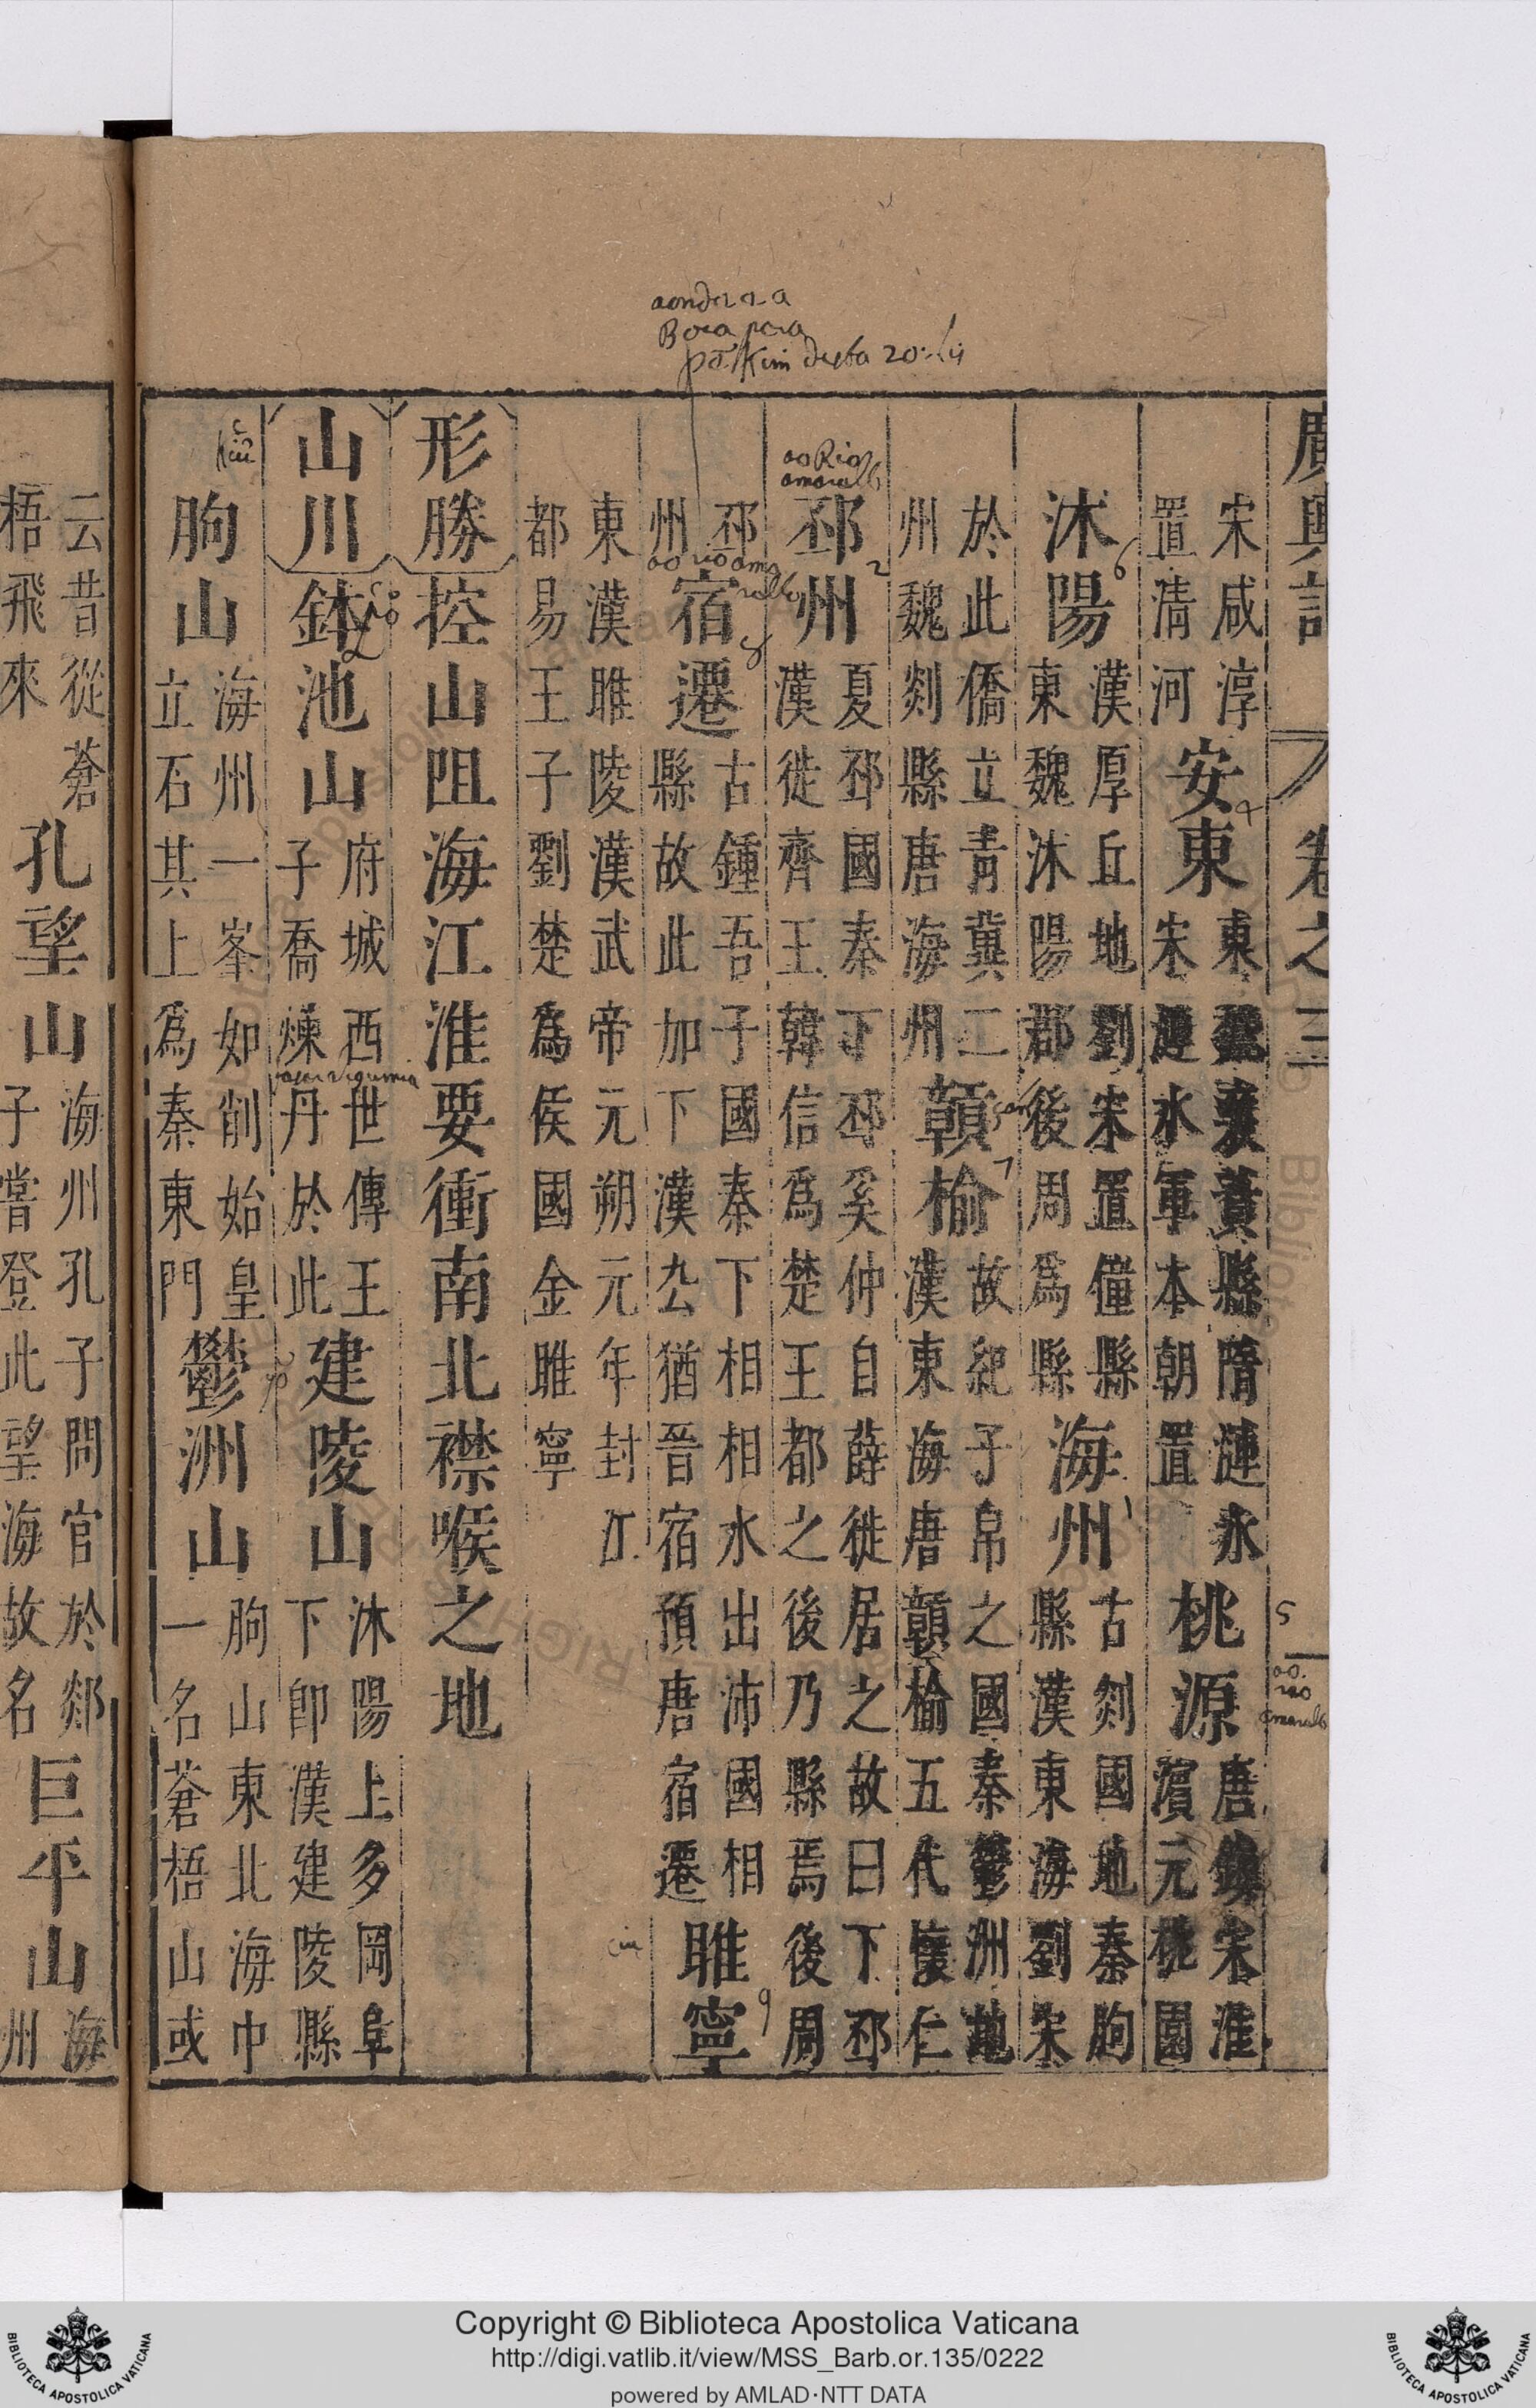 廣輿記 卷之三
宋咸淳
置清河
安東
東襄賁縣隋漣水
宋漣水軍本朝置
桃源
唐鎮宋淮
濱元桃園
沐陽
漢厚丘地劉宋置僮縣
東魏沐陽郡後周爲縣
海州
古郯國地秦朐
縣漢東海劉宋
於此僑立青冀二
州魏郯縣唐海州
贑榆
故紀子帛之國秦鬱洲地
漢東海唐贑榆五代懷仁
邳州
夏邳國秦下邳奚仲自薛徙居之故曰下邳
漢徙齊王韓信爲楚王都之後乃縣焉後周
邳
州
宿遷
古鍾吾子國秦下相相水出沛國相
縣故此加下漢厹猶晉宿預唐宿遷
睢寧
東漢睢陵漢武帝元朔元年封江
都易王子劉楚爲侯國金睢寧
形勝
控山阻海江淮要衝南北襟喉之地
山川
鉢池山
府城西世傳王
子喬煉丹於此
建陵山
沐陽上多岡阜
下卽漢建陵縣
朐山
海州一峯如削始皇
立石其上爲秦東門
鬱洲山
朐山東北海中
一名蒼梧山或
云昔從蒼
梧飛來
孔望山
海州孔子問官於郯
子嘗登此望海故名
巨平山
海
州
ao Rio
5
6
4
1
7
2
8
9
Copyright © Biblioteca Apostolica Vaticana
http://digi.vatlib.it/view/MSS_Barb.or.135/0222
powered by AMLAD·NTT DATA
BIBLIOTECA APOSTOLICA VATICANA
BIBLIOTECA APOSTOLICA VATICANA